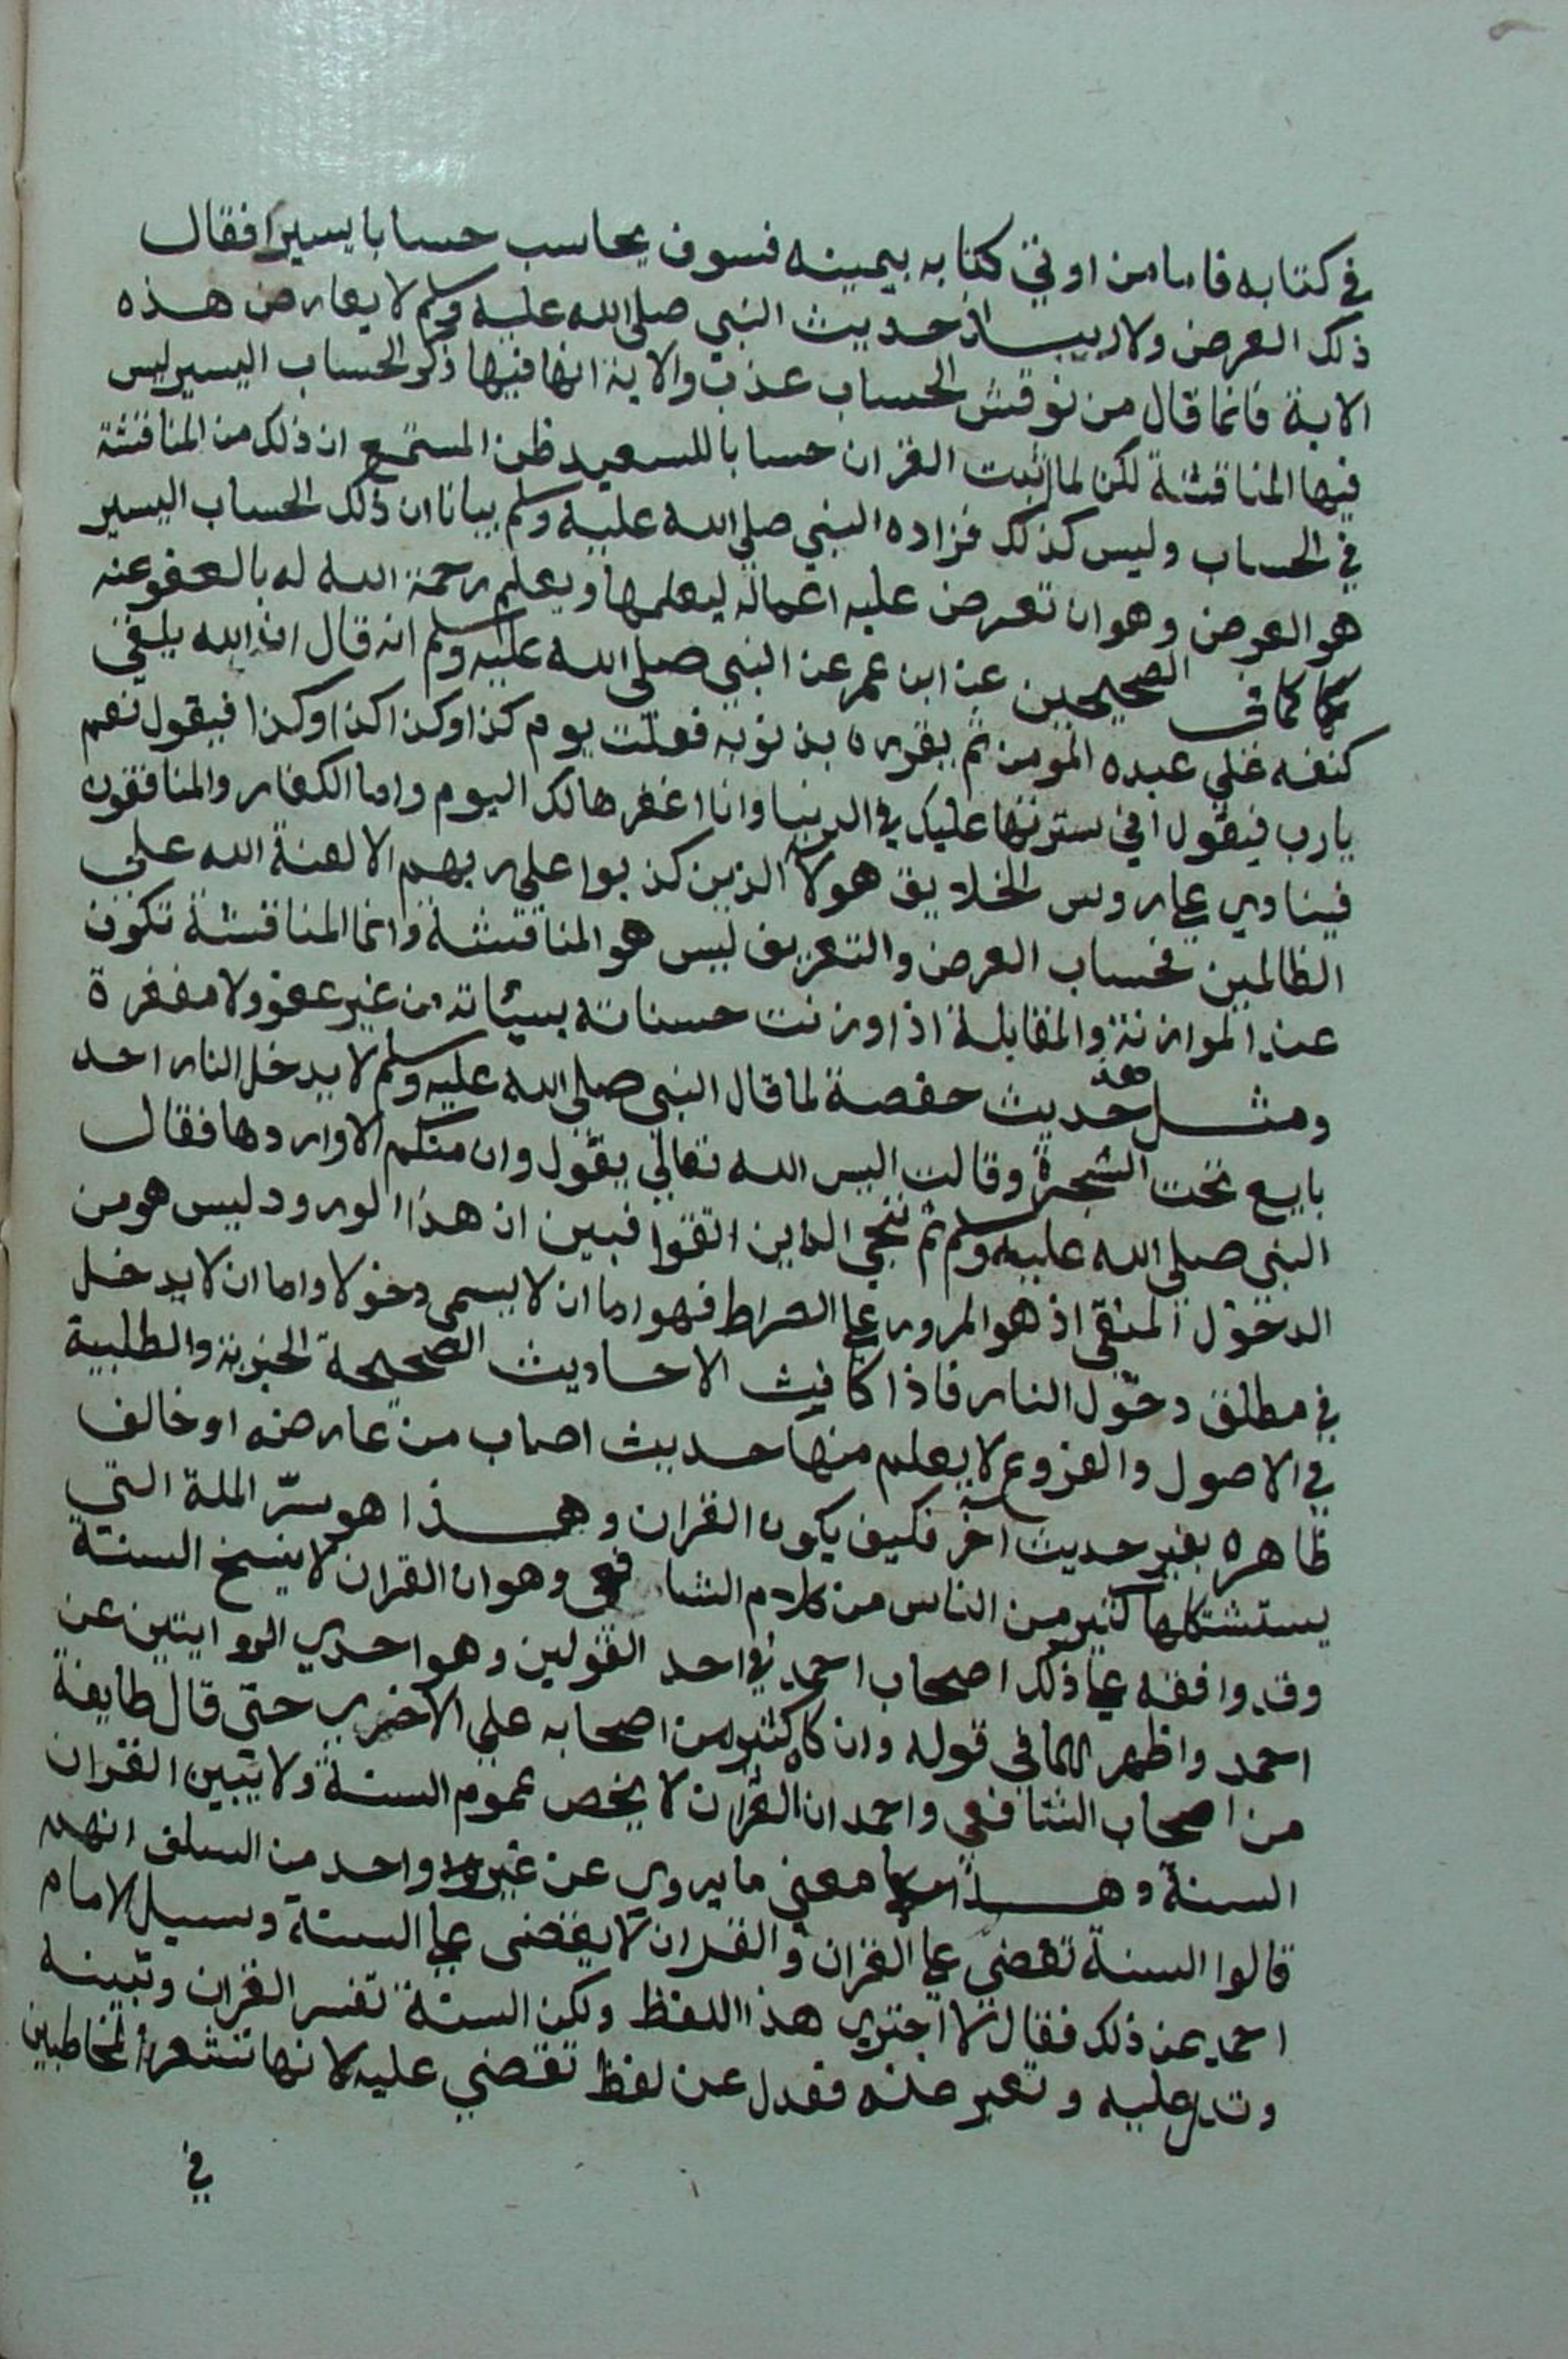 في كتابه فاما من اوتي كتابه بيمينه فسوف يحاسب حسابا يسيرا فقال
ذلك العرض ولاريب ان حديث النبي صلى الله عليه وسلم لا يعارض هذه
الاية فانما قال من نوقش الحساب عذب والاية انما فيها ذكر الحساب اليسير ليس
فيها المناقشة لكن لما اثبت القران حسابا للسعيد ظن المستمع ان ذلك من المناقشة
في الحساب وليس كذلك فزاده النبي صلى الله عليه وسلم بيانا ان ذلك الحساب اليسير
هو العرض وهو ان تعرض عليه اعماله ليعلمها ويعلم رحمة الله له بالعفو عنه
كما في الصحيحين عن ابن عمر عن النبي صلى الله عليه وسلم انه قال ان الله يلقي
كنفه على عبده المومن ثم يقرره بذنوبه فعلت يوم كذا وكذا كذا وكذا فيقول نعم
يارب فيقول اني سترتها عليك في الدنيا وانا اغفرها لك اليوم واما الكفار والمنافقون
فينادي على روس الخلايق هولا الذين كذبوا على ربهم الا لعنة الله على
الظالمين فحساب العرض والتعريف ليس هو المناقشة وانما المناقشة تكون
عند الموازنة والمقابلة اذا وزنت حسناته بسيئاته من غير عفو ولا مغفرة
ومثل هذا حديث حفصة لما قال النبي صلى الله عليه وسلم لا يدخل النار احد
بايع تحت الشجرة وقالت اليس الله تعالي يقول وان منكم الا واردها فقال
النبي صلى الله عليه وسلم ثم ننجي الذين اتقوا فبين ان هذا الورود ليس هو من
الدخول المنفي اذ هو المرور على الصراط فهو اما ان لا يسمى دخولا واما ان لا يدخل
في مطلق دخول النار فاذا كانت الاحاديث الصحيحة الخبرية والطلبية
في الاصول والفروع لا يعلم منها حديث اصاب من عارضه او خالف
ظاهره بغير حديث آخر فكيف يكون القران وهذا هو سرّ الملة التي
يستشكلها كثير من الناس من كلام الشافعي وهو ان القران لا ينسخ السنة
وقد وافقه على ذلك اصحاب احمد في احد القولين وهو احدي الروايتين عن
احمد واظهرهما في قوله وان كان كثير من اصحابه علي الاخري حتى قال طايفة
من اصحاب الشافعي واحمد ان القرآن لا يخص عموم السنة ولا يبين القران
السنة وهذا معنى ما يروي عن غير واحد من السلف انهم
قالوا السنة تقضي على القران والقران لا يقضى على السنة وسيل الامام
احمد عن ذلك فقال لا اجتري هذا اللفظ ولكن السنة تفسر القران وتبينه
وتدل عليه وتعبر عنه فعدل عن لفظ تقضي عليه لانها تشعر المخاطبين
في